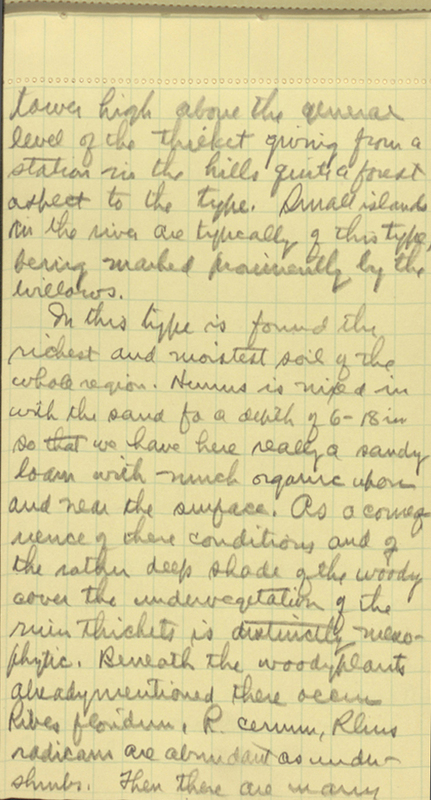 tower high above the general
level of the thicket giving from a
station in the hills quite a forest
aspect to the type. Small islands
in the river are typically of this type,
being marked prominently by the
willows.
In this type is found the
richest and moistest soil of the
whole region. Humus is mixed in
with the sand to a depth of 6-18 in
so that we have here really a sandy
loam with much organic upon
and near the surface. As a conseq-
uence of these conditions and of
the rather deep shade of the woody
cover the undervegetation of the
river thickets is distinctly meso-
phytic. Beneath the woody plants
already mentioned there occur
Ribes floridum, R. Rhus
radicans are abundant as under-
shrubs. Then there are many